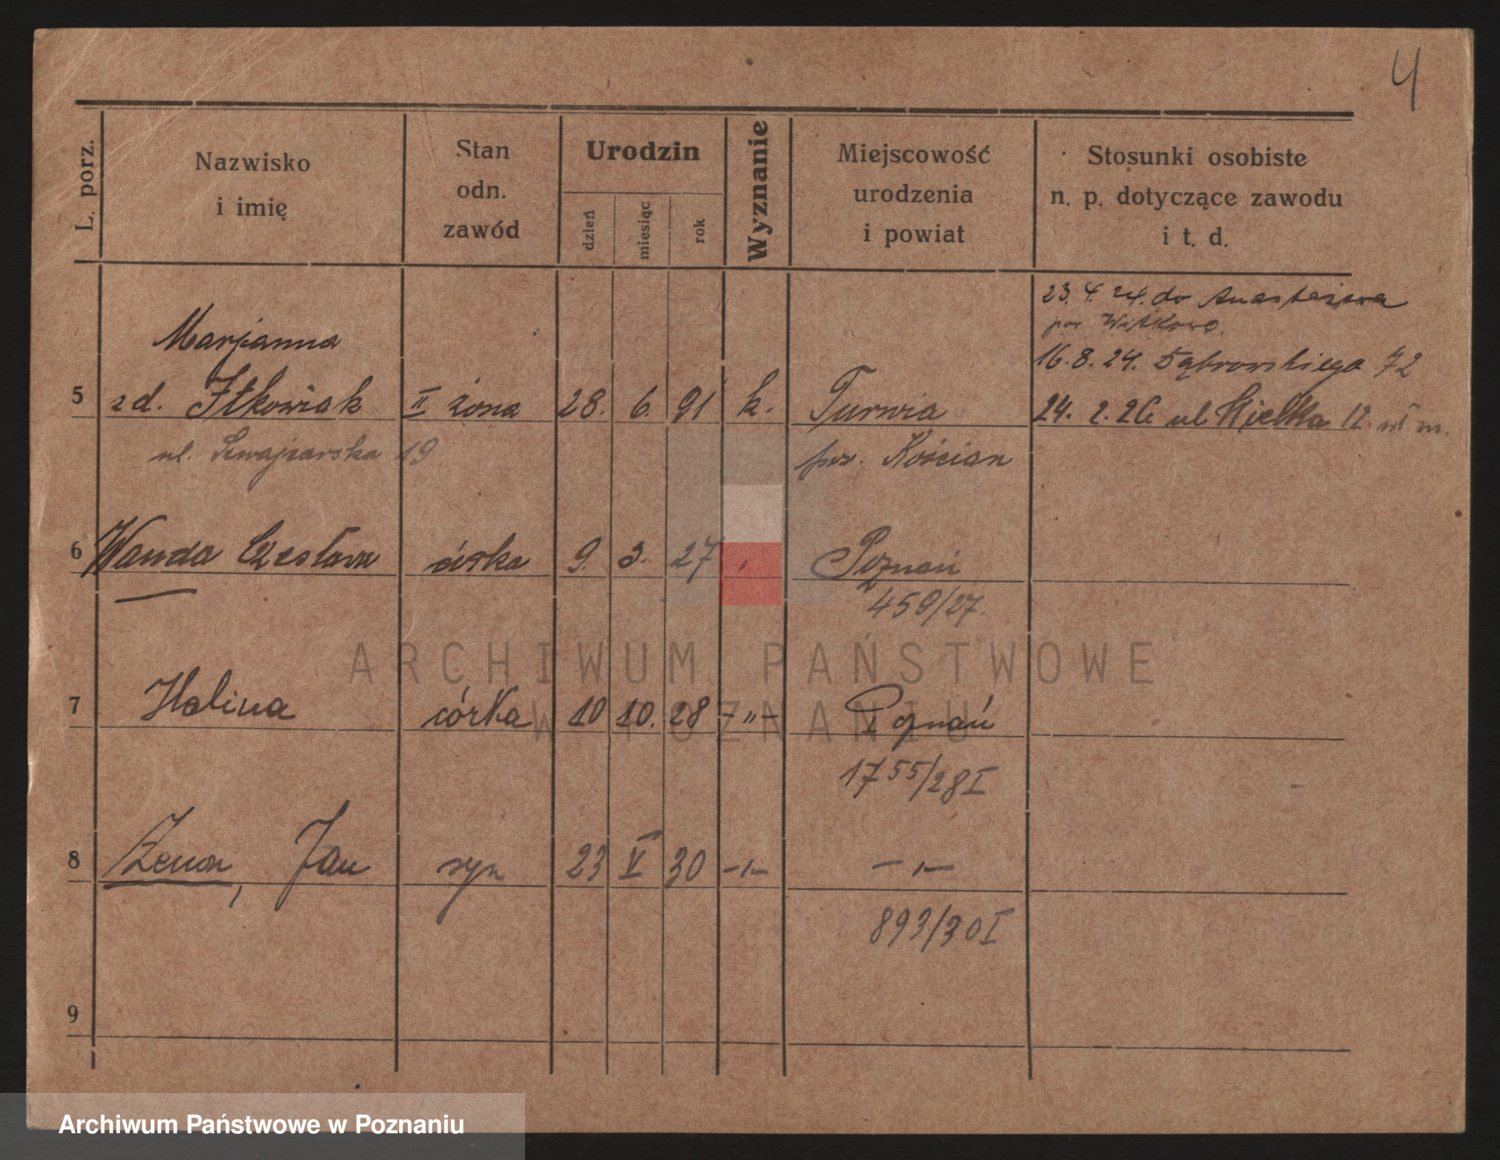 4
L. porz.
Nazwisko
i imię
Stan
odn.
zawód
Urodzin
dzień
miesiąc
rok
Wyznanie
Miejscowość
urodzenia
i powiat
Stosunki osobiste
n. p. dotyczące zawodu
i t. d.
23. 4. 24. do Anastazewa
pow Witkowo.
Marjanna
16. 8. 24. Dąbrowskiego 72
5 zd. Itkowiak II żona 28. 6. 91 k. Turwia 24. 2. 26 ul Wielka 12.
ul. Szwajcarska 19 pow. Kościan
6 Wanda Czesława córka 9. 3. 27 Poznań
459/27.
7 Halina córka 10 10. 28 -"- Poznań
1755/28 I
8 Zenon, Jan syn 23 V 30 -"- -"-
893/30 I
9
ARCHIWUM PAŃSTWOWE
W POZNANIU
Archiwum Państwowe w Poznaniu